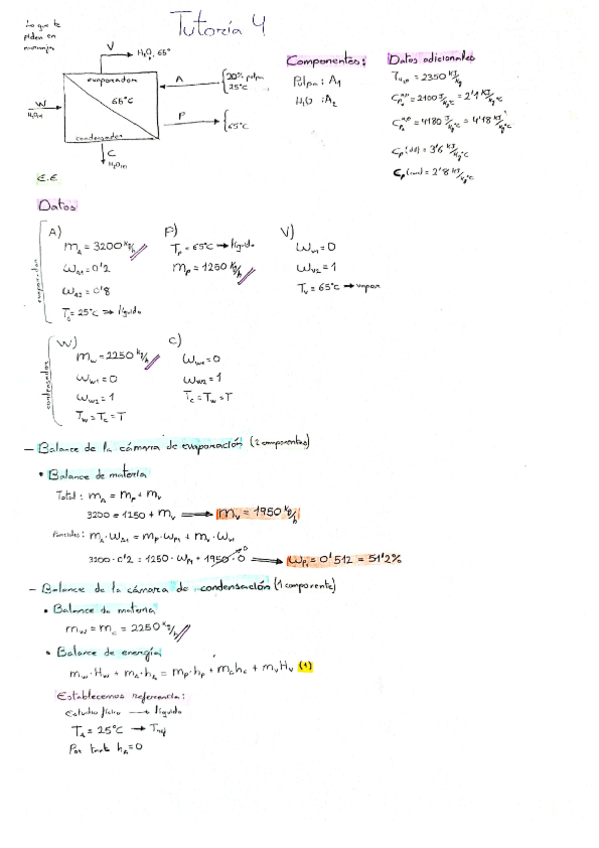 Tutoría 4
Lo que te
piden en
naranja
V
H₂O, 65°
evaporador
65°C
condensador
W
H₂O(v)
A
20% pulpa
25°C
P
65°C
C
H₂O(l)
E.E
Componentes:
Pulpa: A₁
H₂O: A₂
Datos adicionales
= 2350 kJ/kg
= 2100 J/kg°C = 2'1 kJ/kg°C
= 4180 J/kg°C = 4'18 kJ/kg°C
Cp (dil) = 3'6 kJ/kg°C
Cp (conc) = 2'8 kJ/kg°C
Datos
evaporador
A)
m_A = 3200 kg/h
ω_A1 = 0'2
ω_A2 = 0'8
= 25°C → líquido
P)
T_P = 65°C → líquido
m_P = 1250 kg/h
V)
ω_V1 = 0
ω_V2 = 1
T_V = 65°C → vapor
condensador
W)
m_W = 2250 kg/h
ω_W1 = 0
ω_W2 = 1
T_W = T_C = T
C)
= 0
= 1
T_C = T_W = T
- Balance de la cámara de evaporación (2 componentes)
• Balance de materia
Total: m_A = m_P + m_V
3200 = 1250 + m_V ⟹ m_V = 1950 kg/h
Parciales: m_A · = m_P · ω_P1 + m_V · ω_V1
3200 · 0'2 = 1250 · ω_P1 + 1950 · 0 ⟹ ω_P1 = 0'512 = 51'2%
- Balance de la cámara de condensación (1 componente)
• Balance de materia
m_W = m_C = 2250 kg/h
• Balance de energía
m_W · H_W + m_A · h_A = m_P · h_P + m_C h_C + m_V H_V (1)
Establecemos referencia:
Estado físico → líquido
T_A = 25°C → T_ref
Por tanto h_A = 0